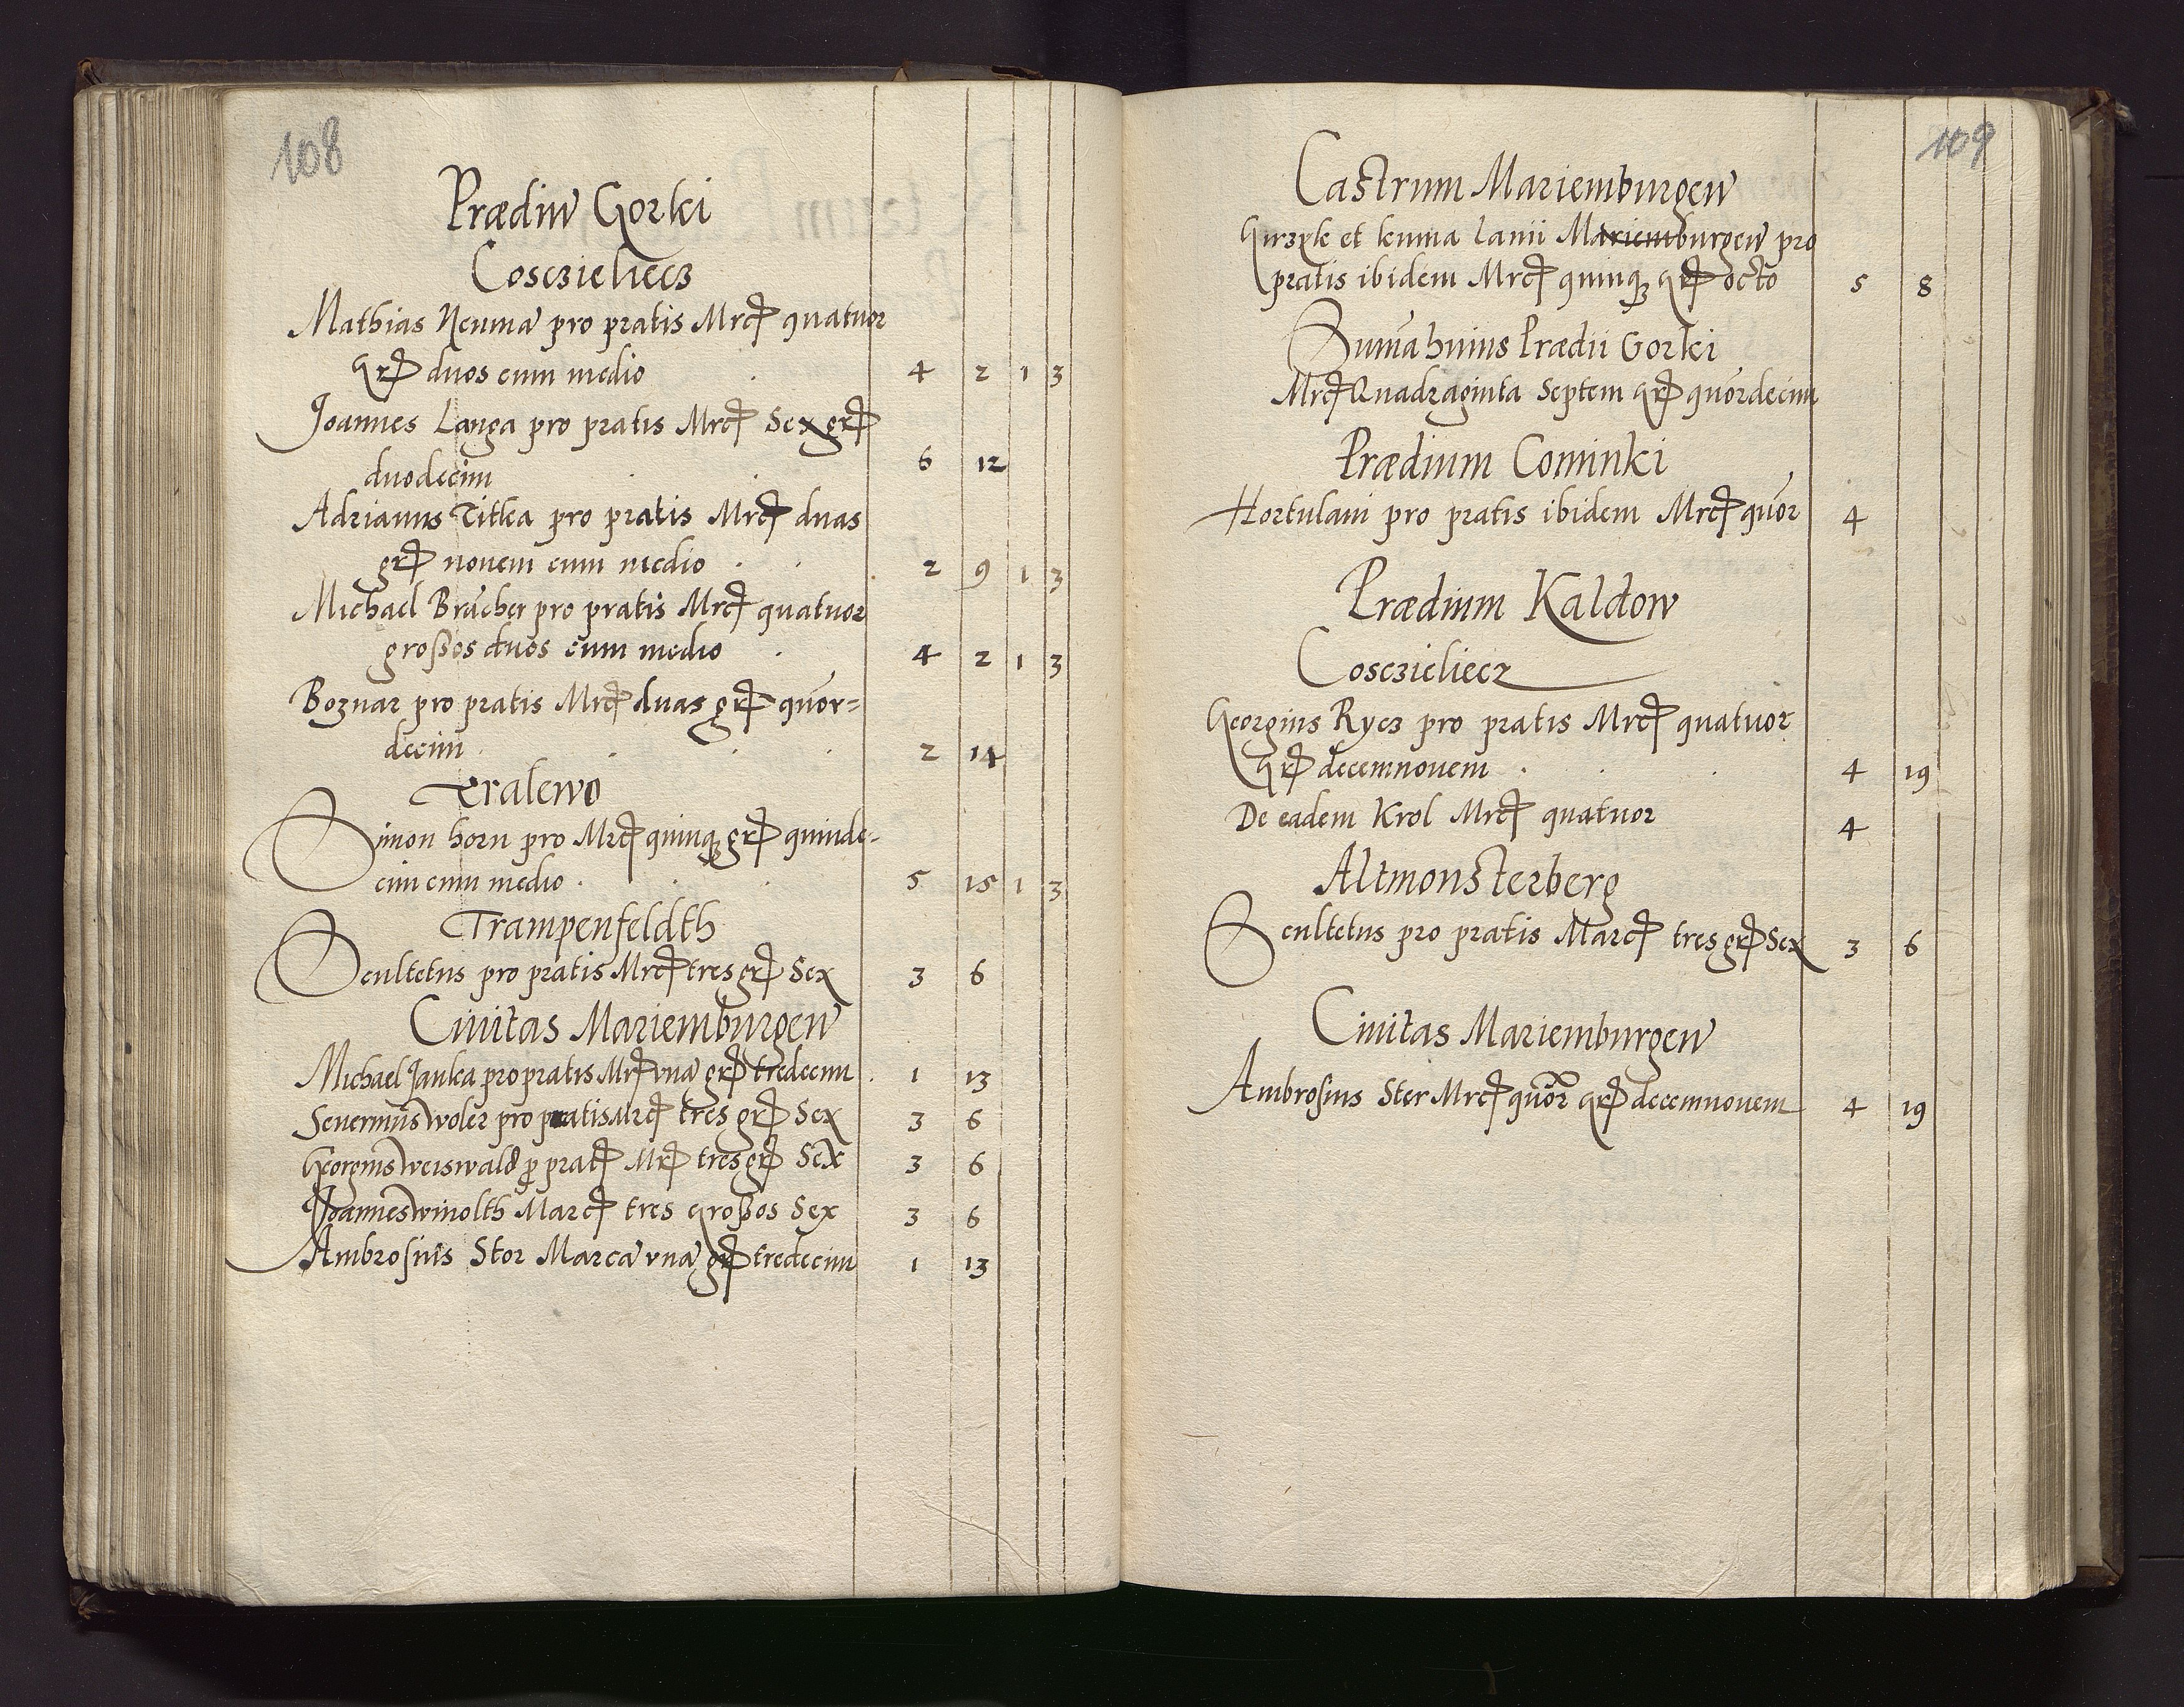 108
Prædiu Gorki
Cosczieliecz
Mathias Neuma pro pratis Mrc quatuor
gr duos cum medio 4 2 1 3
Joannes Langa pro pratis Mrc Sex gr
duodecim 6 12
Adrianus Titka pro pratis Mrc duas
gr nouem cum medio 2 9 1 3
Michael Brucher pro pratis Mrc quatuor
großos duos cum medio 4 2 1 3
Boznar pro pratis Mrc duas gr quor=
decim 2 14
Tralewo
Simon horn pro Mrc quinq gr quinde-
cim cum medio 5 15 1 3
Trampenfeldth
Scultetus pro pratis Mrc tres gr Sex 3 6
Ciuitas Mariemburgen
Michael Janka pro pratis Mr vna gr tredecim 1 13
Seuerinus woler pro pratis Mrc tres gr Sex 3 6
Georgius weiswald p prat Mr tres gr Sex 3 6
Joannes winolth Marc tres großos Sex 3 6
Ambrosius Stor Marca vna gr tredecim 1 13
109
Castrum Mariemburgen
Girzyk et kuma lanii Mariemburgen pro
pratis ibidem Mrc quinq gr octo 5 8
Suma huius Prædii Gorki
Mrc Quadraginta Septem gr quordecim
Prædium Cominki
Hortulani pro pratis ibidem Mrc quor 4
Prædium Kaldow
Cosczieliecz
Georgius Rycz pro pratis Mrc quatuor
gr decemnouem 4 19
De eadem Krol Mrc quatuor 4
Altmonsterberg
Scultetus pro pratis Marc tres gr Sex 3 6
Ciuitas Mariemburgen
Ambrosius Ster Mrc quor gr decemnouem 4 19